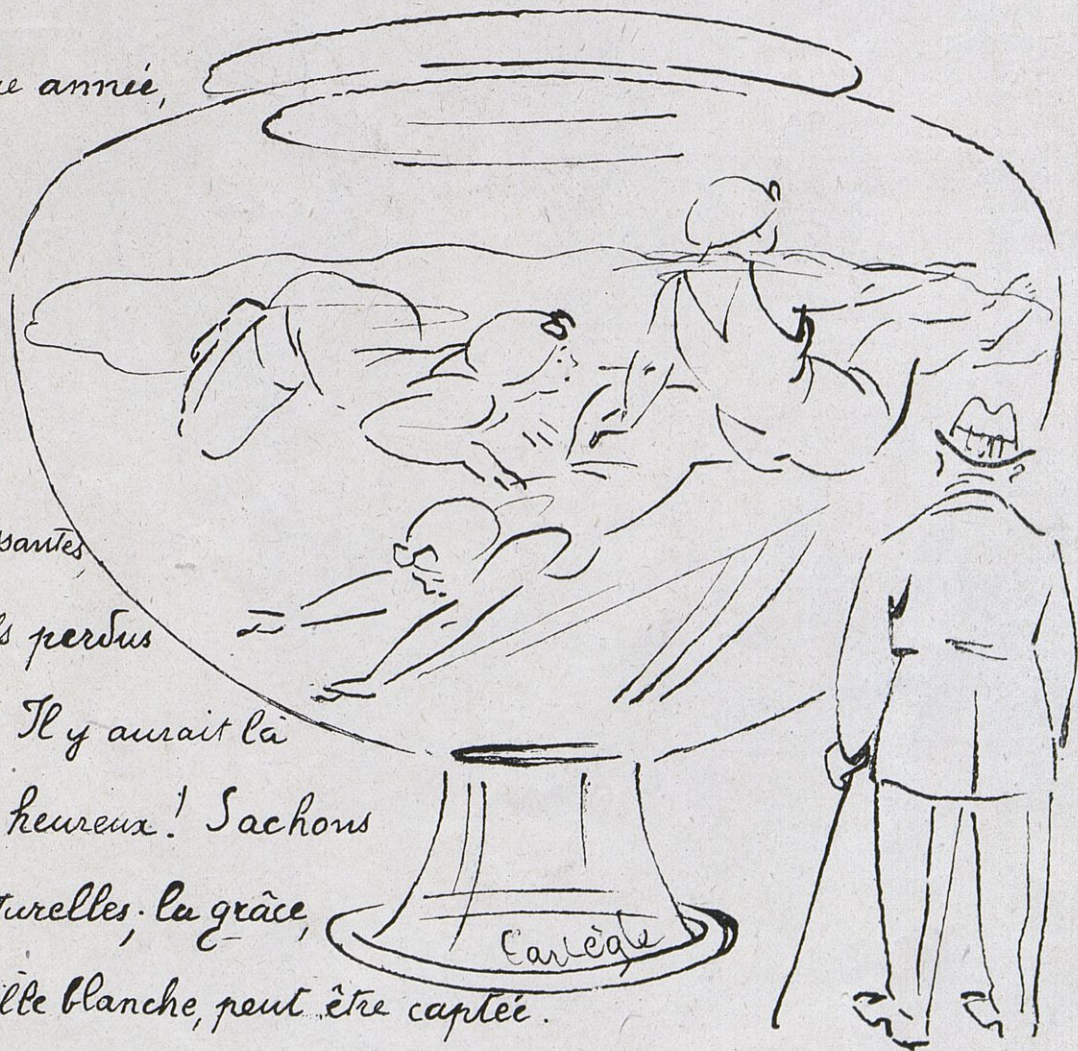 année,
santes
perdus
Il y aurait là
heureux! Sachons
turelles; la grâce,
blanche, peut être captée.
Carlègle